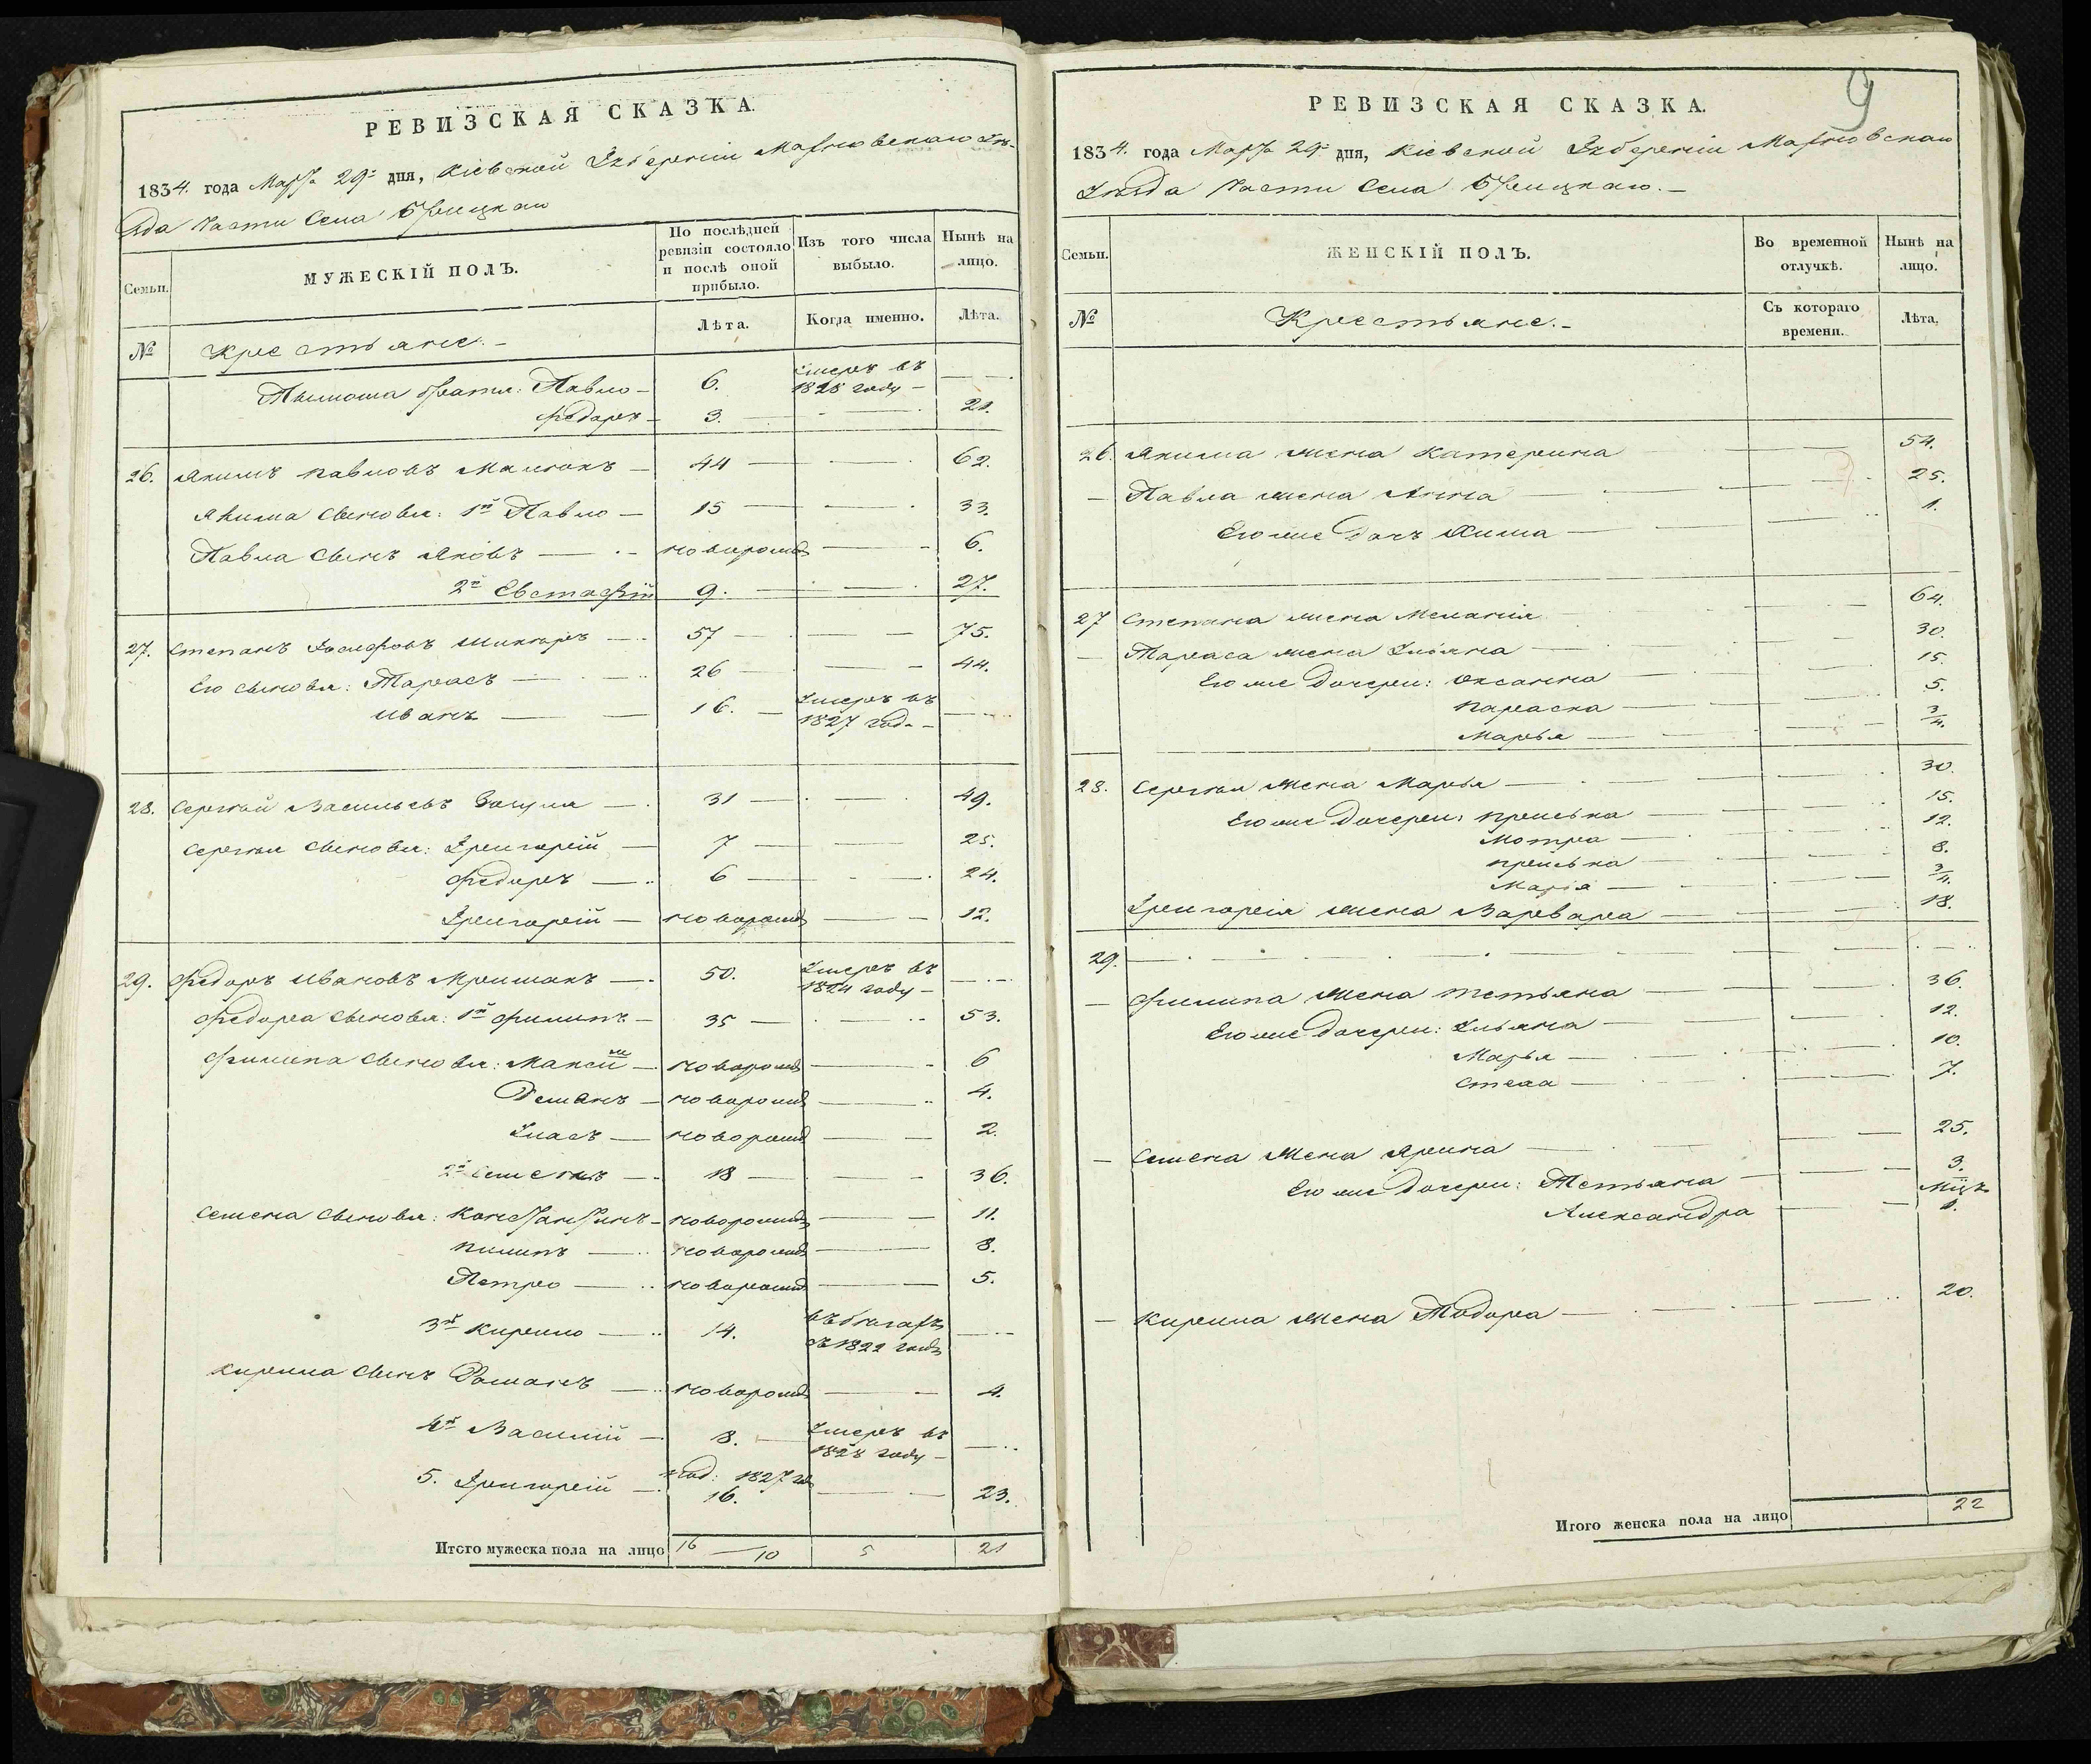 РЕВИЗСКАЯ СКАЗКА.
1834. года Марта 29го дня, Кіевской Губерніи Махновскаго Уѣ-
зда Части Села
Семьи.
МУЖЕСКІЙ ПОЛЪ.
По послѣдней ревизіи состояло и послѣ оной прибыло.
Изъ того числа выбыло.
Нынѣ на лицо.
№
Крестьяне.-
Лѣта.
Когда именно.
Лѣта.
брата: Павло - 6. Умеръ въ 1828 году -
Ѳедоръ - 3. 21.
26. Якимъ Павловъ 44 62.
Якима сыновья: 1й Павло - 15 33.
Павла сынъ Яковъ новорожд 6.
2й Евстафій 9. 27.
27. Степанъ Іосифовъ 57 75.
Его сыновья: Тарасъ 26 44.
Иванъ 16. Умеръ въ 1827 год.
28. Сергѣй Васильевъ 31 49.
Сергѣя сыновья: Григорій 7 25.
Федоръ 6 24.
Григорій новорожд 12.
29. Федоръ Ивановъ 50. Умеръ въ 1824 году -
Федора сыновья: 1й Филипъ - 35 53.
Филипа сыновья: Максим новорожд 6
Демянъ новорожд 4.
Власъ новорожд 2.
2й Семенъ 18 36.
Семена сыновья: Константинъ - новорожд 11.
Пилипъ новорожд 8.
Петро новорожд 5.
3й Кирило 14. въ бѣгахъ съ 1822 года
Кирила сынъ новорожд 4.
4й Василій 8. Умеръ въ 1828 году -
5. Григорій 1827 го 16. 23.
Итого мужеска пола на лицо 16 10 5 21
9
РЕВИЗСКАЯ СКАЗКА.
1834. года Марта 29го дня, Кіевской Губерніи Махновскаго
Уѣзда Части Села
Семьи.
ЖЕНСКІЙ ПОЛЪ.
Во временной отлучкѣ.
Нынѣ на лицо.
№
Крестьяне.-
Съ котораго времени.
Лѣта.
26. Якима жена Катерина 54.
Павла жена Анна 25.
Его же дочь 1.
27 Степана жена Меланія 64.
Тараса жена Ульяна 30.
Его же дочери: Оксанна 15.
Параска 5.
Марья 3/4.
28. Сергѣя жена Марья 30.
Его же дочери: Приська 15.
Мотра 12.
Приська 8.
Марія 3/4.
Григорія жена Варвара 18.
29.
Филипа жена Тетьяна 36.
Его же дочери: Ульяна 12.
Марья 10.
7.
Семена жена Ярина 25.
Его же дочери: Тетьяна 3.
Александра 1.
Кирила жена Тодора 20.
Итого женска пола на лицо 22